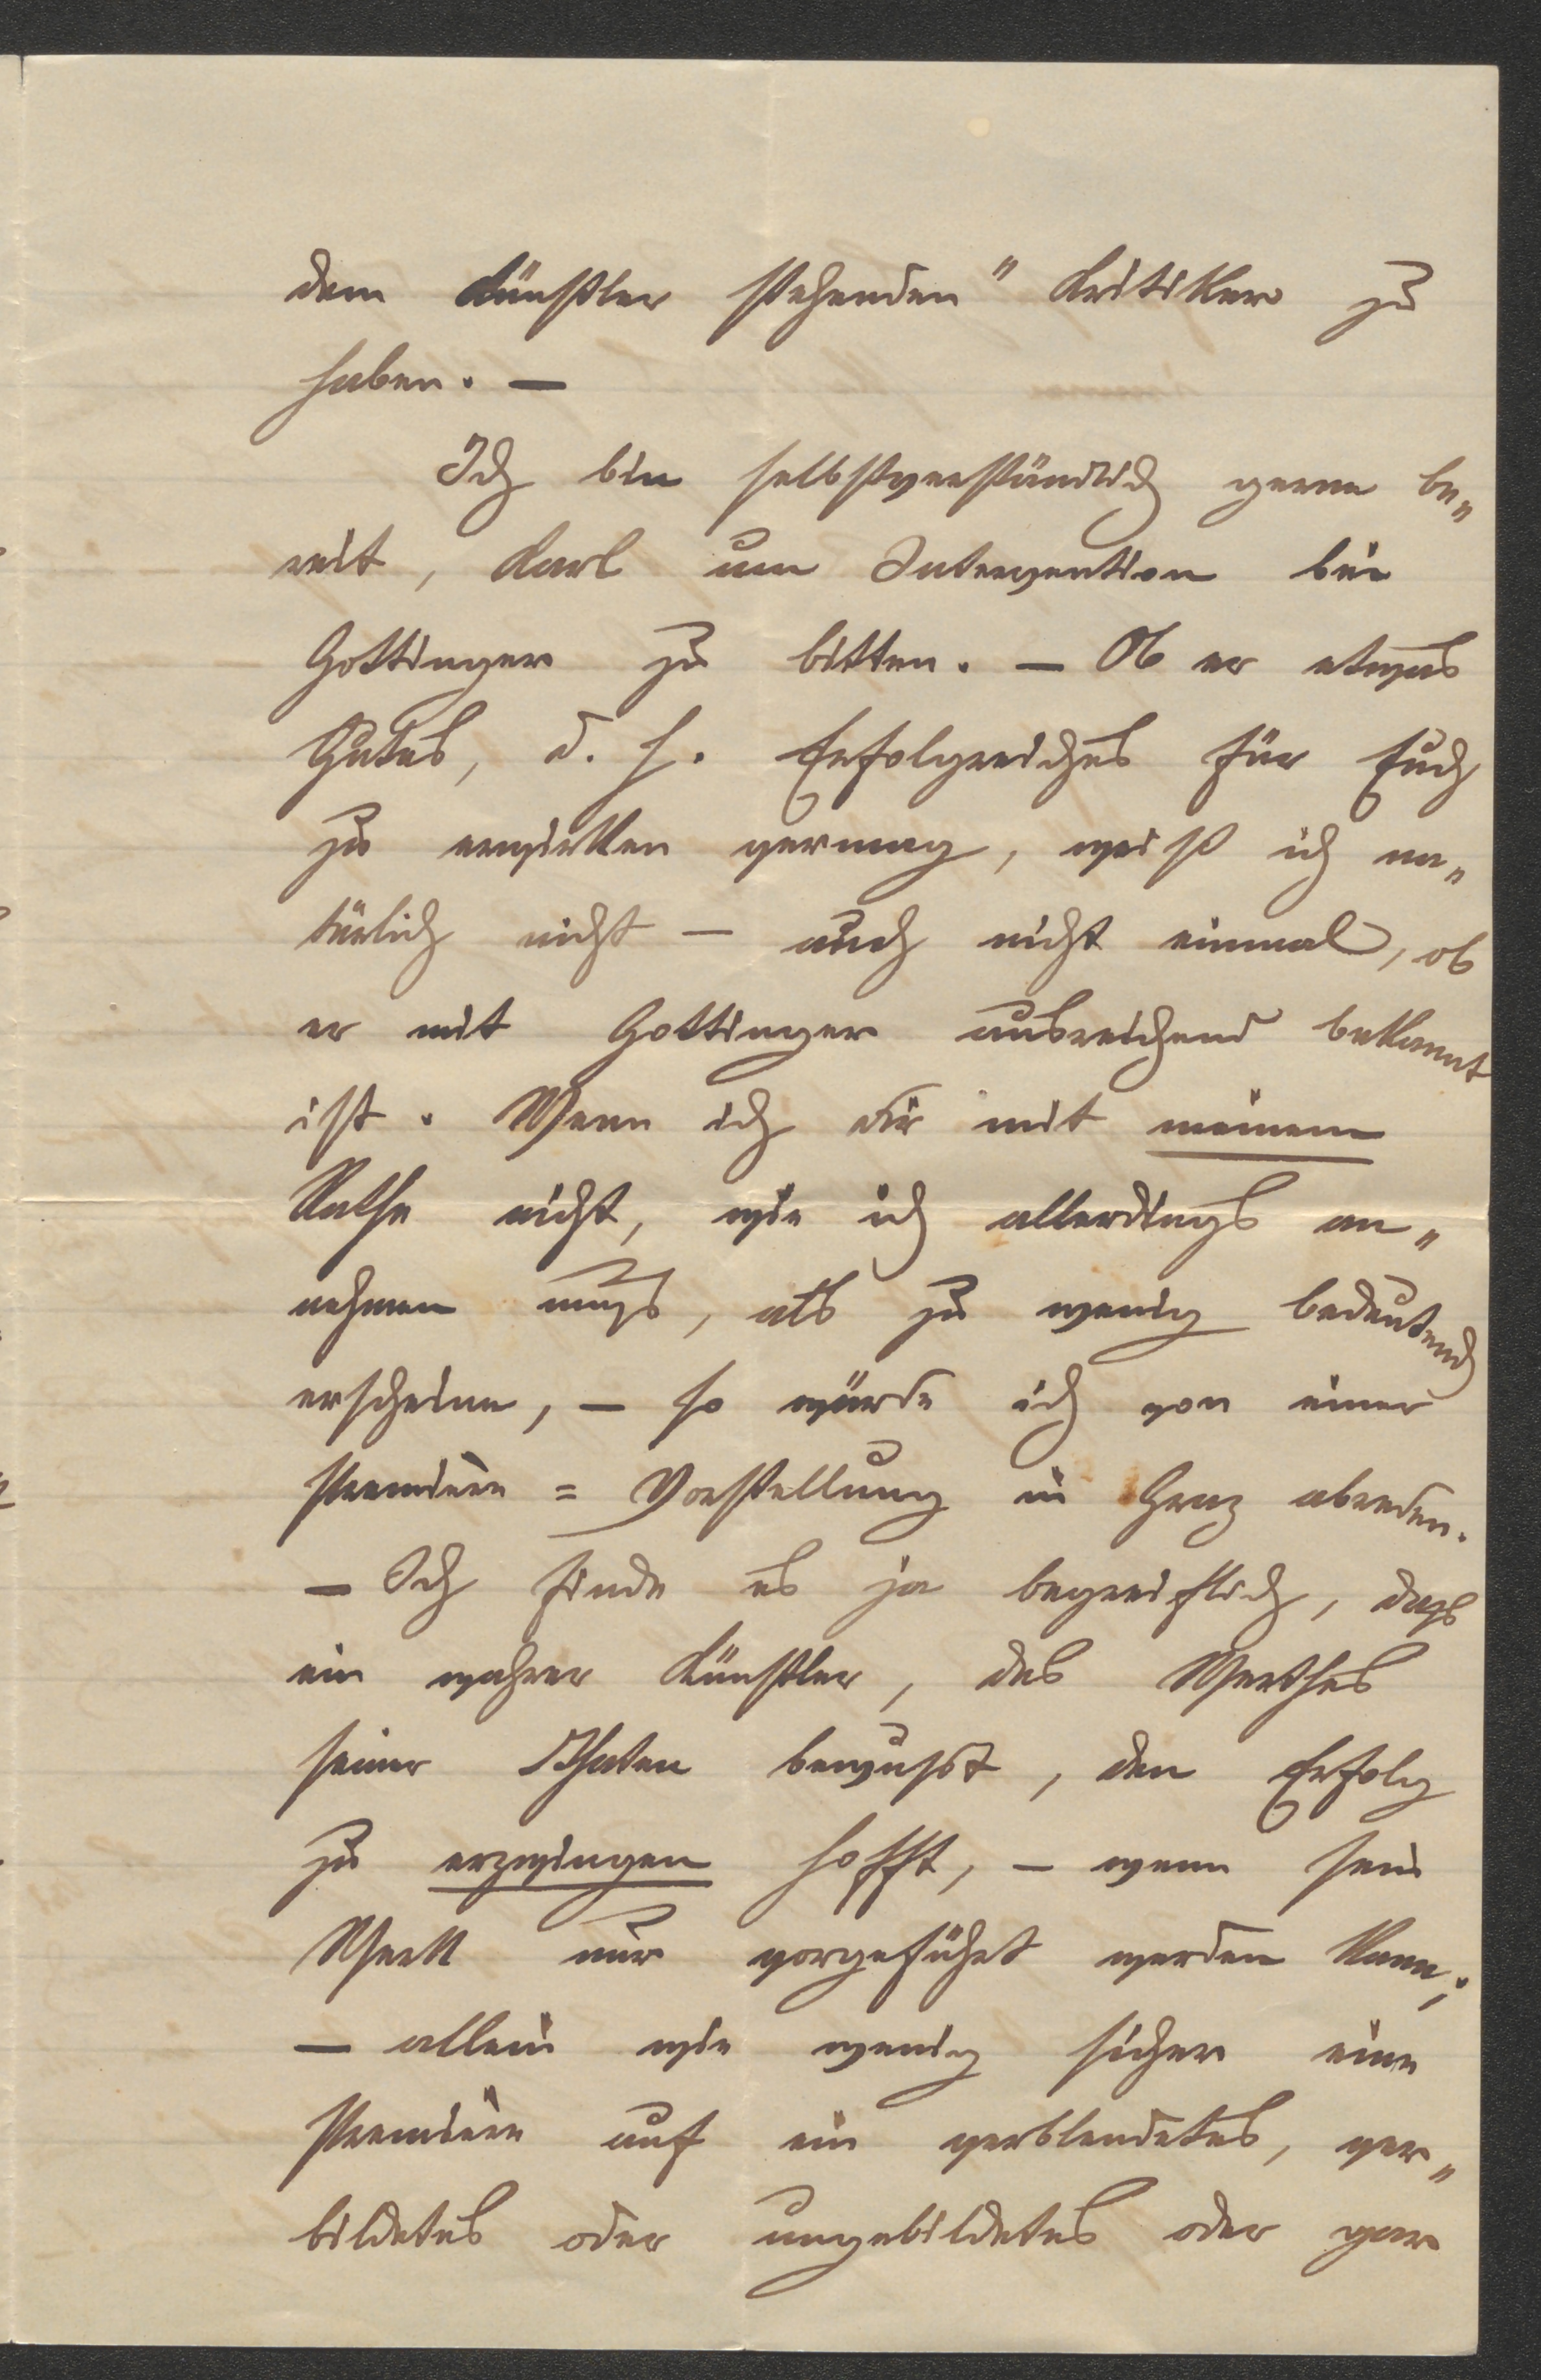 dem Künstler stehenden" Kritiker zu
haben. —
Ich bin selbstverständlich gerne be„
reit, Karl um Intervention bei
Gottinger zu bitten. — Ob er etwas
Gutes, d. h. Erfolgreiches für Euch
zu erwirken vermag, weiß ich na„
türlich nicht — auch nicht einmal, ob
er mit Gottinger ausreichend bekannt
ist. Wenn ich dir mit meinem
Rathe nicht, wie ich allerdings an„
nehmen muss, als zu wenig bedeutend
erscheine, — so würde ich von einer
Premiere = Vorstellung in Graz abreden.
— Ich finde es ja begreiflich, dass
ein wahrer Künstler, des Werthes
seiner Thaten bewusst, den Erfolg
zu erzwingen hofft, — wenn sein
Werk nur vorgeführt werden kann;
— allein wie wenig sicher eine
Premiere auf ein verblendetes, ver„
bildetes oder ungebildetes oder gar